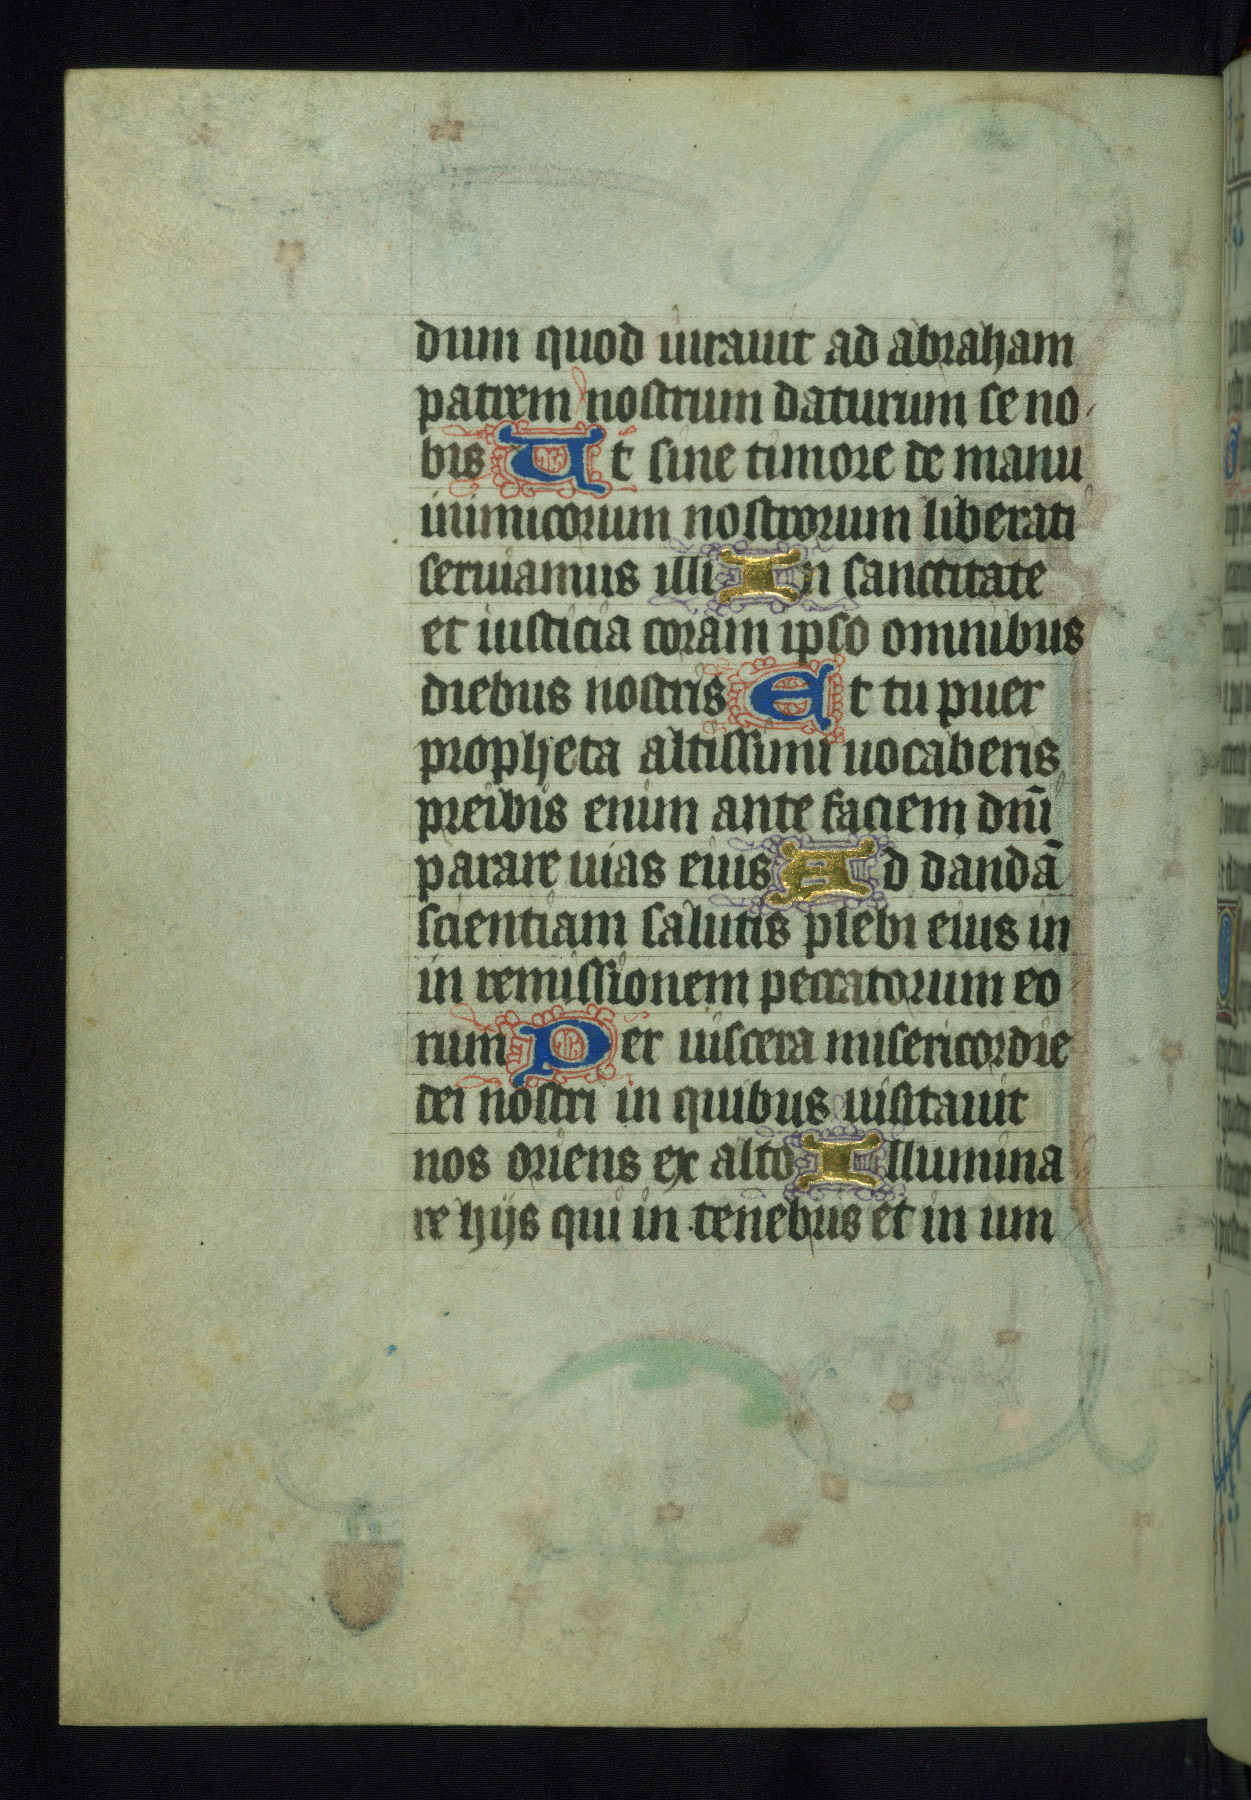 dium quod iurauit ad abraham
patrem nostrum daturum se no
bis Ut sine timore de manu
inimicorum nostrorum liberati
seruiamus illi In sanctitate
et iusticia coram ipso omnibus
diebus nostris Et tu puer
propheta altissimi uocaberis
preibis enim ante faciem dnī
parare uias eius Ad dandā
scientiam salutis plebi eius in
in remissionem peccatorum eo
rum Per uiscera misericordie
dei nostri in quibus uisitauit
nos oriens ex alto Illumina
re hijs qui in tenebris et in um